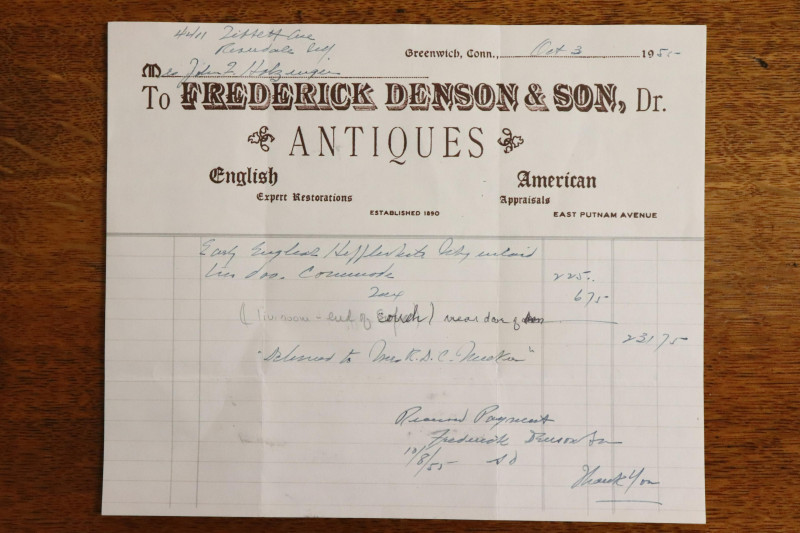 Tibbett Ave
Riverdale
Greenwich, Conn., Oct 3 1955
Mrs John Z Holzinger
To FREDERICK DENSON & SON, Dr.
ANTIQUES
English American
Expert Restorations Appraisals
ESTABLISHED 1890
EAST PUTNAM AVENUE
Early English Hepplewhite inlaid
Commode 225.
Tax 6 75
( end of couch) near door
231 75
"Delivered to Mrs R. D. C. Meeker"
Received Payment
Frederick Denson & Son
10/8/55
Thank You